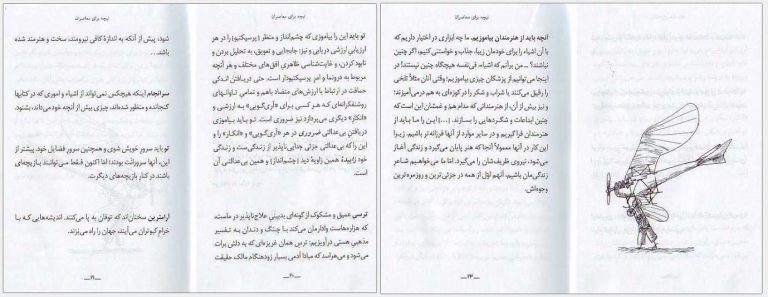 نیچه برای معاصران
تو باید این را بیاموزی که چشم‌انداز و منظر [پرسپکتیو] را در هر
ارزیابیِ ارزشی دریابی و نیز: جابجایی و تعویق، به تحلیل بردن و
نابود کردن، و غایت‌شناسی ظاهریِ افق‌های مختلف و هر آنچه
مربوط به درونما و امرِ پرسپکتیودار است. حتی دریافتن اندکی
حماقت در ارتباط با ارزش‌های متضاد باهم و تمامی تاوانهای
روشنفکرانه‌ای که هر کسی برای «آری‌گویی» به ارزشی و
«انکار» دیگری می‌پردازد نیز ضروری است. تو باید بیاموزی
دریافتن بی‌عدالتی ضروری در هر «آری‌گویی» و «انکار» را و
این را که بی‌عدالتی جزئی جدایی‌ناپذیر از زندگی‌ست و زندگی
خود زاییدهٔ همین زاویهٔ دید [چشم‌انداز] و همین بی‌عدالتی آن
است که.
ترسی عمیق و مشکوک از گونه‌ای بدبینیِ علاج‌ناپذیر در ماست،
که هزاره‌هاست وادارمان می‌کند با چنگ و دندان به تفسیر
مذهبیِ هستی درآویزیم: ترسِ همان غریزه‌ای که به دلش برات
می‌شود و می‌هراسد که مبادا آدمی بسیار زودهنگام مالک حقیقت
ــ۲۰ــ
نیچه برای معاصران
شود، پیش از آنکه به اندازهٔ کافی نیرومند، سخت و هنرمند شده
باشد...
سرانجام اینکه هیچکس نمی‌تواند از اشیاء و اموری که در کتابها
گنجانده و منظور شده‌اند، چیزی بیش از آنچه خود می‌داند، بشنود.
تو باید سرورِ خویش شوی و همچنین سرورِ فضایل خود. پیشتر از
این، آنها سرورانت بودند؛ امّا اکنون فقط می‌توانند بازیچه‌ای
باشند در کنار بازیچه‌های دیگرت.
آرامترین سخنان‌اند که توفان به پا می‌کنند. اندیشه‌هایی که با
خرام کبوتران می‌آیند، جهان را راه می‌بَرند.
ــ۲۱ــ
نیچه برای معاصران
آنچه باید از هنرمندان بیاموزیم. ما چه ابزاری در اختیار داریم که
با آن اشیاء را برای خودمان زیبا، جذاب و خواستنی کنیم، اگر چنین
نباشند؟ ــ من برآنم که اشیاء، فی‌نفسه هیچگاه چنین نیستند! در
اینجا می‌توانیم از پزشکان چیزی بیاموزیم: وقتی آنان مثلاً تلخی
را رقیق می‌کنند یا شراب و شکر را در کوزه‌ای به هم درمی‌آمیزند؛
و نیز بیش از آن، از هنرمندانی که مدام همّ و غمشان این است که
چنین ابداعات و شگردهایی را بسازند. [...] این را ما باید از
هنرمندان فراگیریم و در سایر موارد از آنها فرزانه‌تر باشیم. زیرا
این کار در آنها معمولاً آنجا که هنر پایان می‌گیرد و زندگی آغاز
می‌شود، نیروی ظریف‌شان را می‌گیرد. امّا ما می‌خواهیم شاعر
زندگی‌مان باشیم، آنهم اول از همه در جزئی‌ترین و روزمره‌ترین
وجوه‌اش.
ــ۲۳ــ